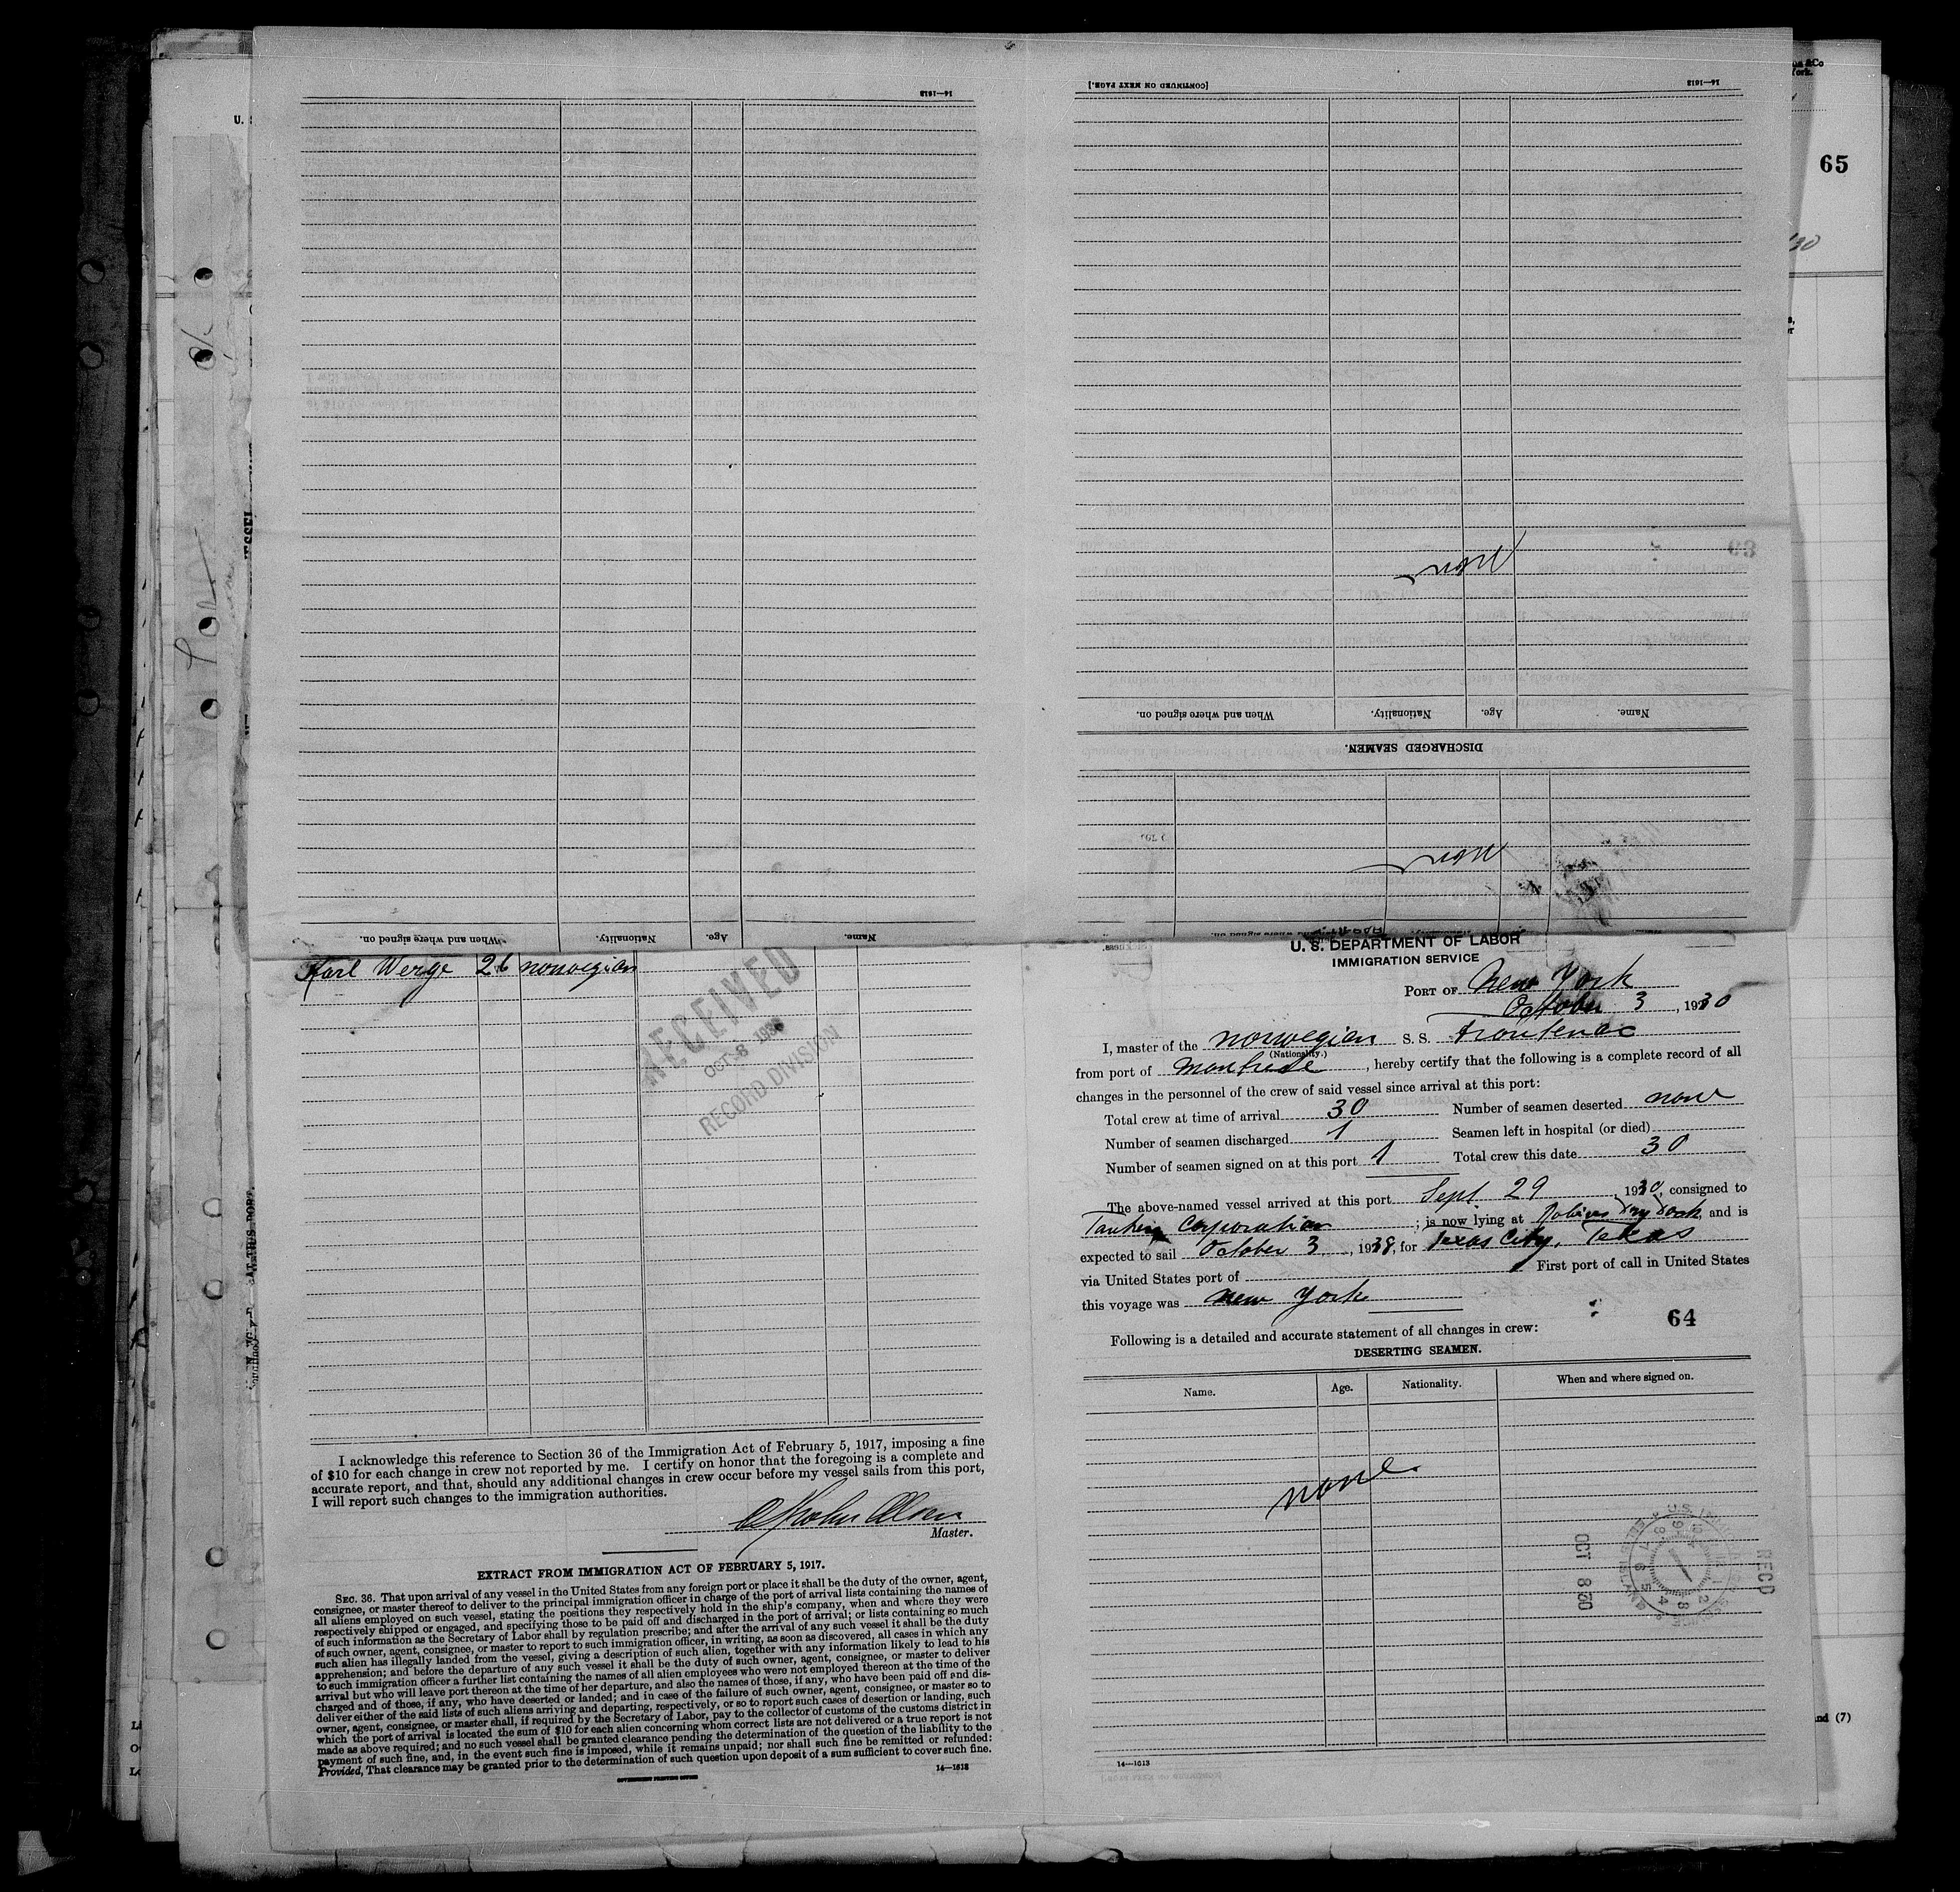 14—1613
[CONTINUED ON NEXT PAGE.]
14—1613
65
none
Name.
Age.
Nationality.
When and where signed on.
DISCHARGED SEAMEN.
none
Name.
Age.
Nationality.
When and where signed on.
Karl Werge 26 norwegian
RECEIVED
OCT 8 1930
RECORD DIVISION
I acknowledge this reference to Section 36 of the Immigration Act of February 5, 1917, imposing a fine
of $10 for each change in crew not reported by me. I certify on honor that the foregoing is a complete and
accurate report, and that, should any additional changes in crew occur before my vessel sails from this port,
I will report such changes to the immigration authorities.
Olsen
Master.
EXTRACT FROM IMMIGRATION ACT OF FEBRUARY 5, 1917.
SEC. 36. That upon arrival of any vessel in the United States from any foreign port or place it shall be the duty of the owner, agent,
consignee, or master thereof to deliver to the principal immigration officer in charge of the port of arrival lists containing the names of
all aliens employed on such vessel, stating the positions they respectively hold in the ship's company, when and where they were
respectively shipped or engaged, and specifying those to be paid off and discharged in the port of arrival; or lists containing so much
of such information as the Secretary of Labor shall by regulation prescribe; and after the arrival of any such vessel it shall be the duty
of such owner, agent, consignee, or master to report to such immigration officer, in writing, as soon as discovered, all cases in which any
such alien has illegally landed from the vessel, giving a description of such alien, together with any information likely to lead to his
apprehension; and before the departure of any such vessel it shall be the duty of such owner, agent, consignee, or master to deliver
to such immigration officer a further list containing the names of all alien employees who were not employed thereon at the time of the
arrival but who will leave port thereon at the time of her departure, and also the names of those, if any, who have been paid off and dis-
charged and of those, if any, who have deserted or landed; and in case of the failure of such owner, agent, consignee, or master so to
deliver either of the said lists of such aliens arriving and departing, respectively, or so to report such cases of desertion or landing, such
owner, agent, consignee, or master shall, if required by the Secretary of Labor, pay to the collector of customs of the customs district in
which the port of arrival is located the sum of $10 for each alien concerning whom correct lists are not delivered or a true report is not
made as above required; and no such vessel shall be granted clearance pending the determination of the question of the liability to the
payment of such fine, and, in the event such fine is imposed, while it remains unpaid; nor shall such fine be remitted or refunded:
Provided, That clearance may be granted prior to the determination of such question upon deposit of a sum sufficient to cover such fine.
GOVERNMENT PRINTING OFFICE
14—1613
U. S. DEPARTMENT OF LABOR
IMMIGRATION SERVICE
PORT OF New York
October 3, 1930
I, master of the norwegian S. S. Frontenac
(Nationality.)
from port of Montreal, hereby certify that the following is a complete record of all
changes in the personnel of the crew of said vessel since arrival at this port:
Total crew at time of arrival 30 Number of seamen deserted none
Number of seamen discharged 1 Seamen left in hospital (or died)
Number of seamen signed on at this port 1 Total crew this date 30
The above-named vessel arrived at this port Sept 29 1930, consigned to
Tankers Corporation; is now lying at Robins Dry Dock, and is
expected to sail October 3, 1930, for Texas City, Texas
via United States port of First port of call in United States
this voyage was new York
64
Following is a detailed and accurate statement of all changes in crew:
DESERTING SEAMEN.
Name. Age. Nationality. When and where signed on.
none
RECD
OCT 8 30
14—1613
and (7)